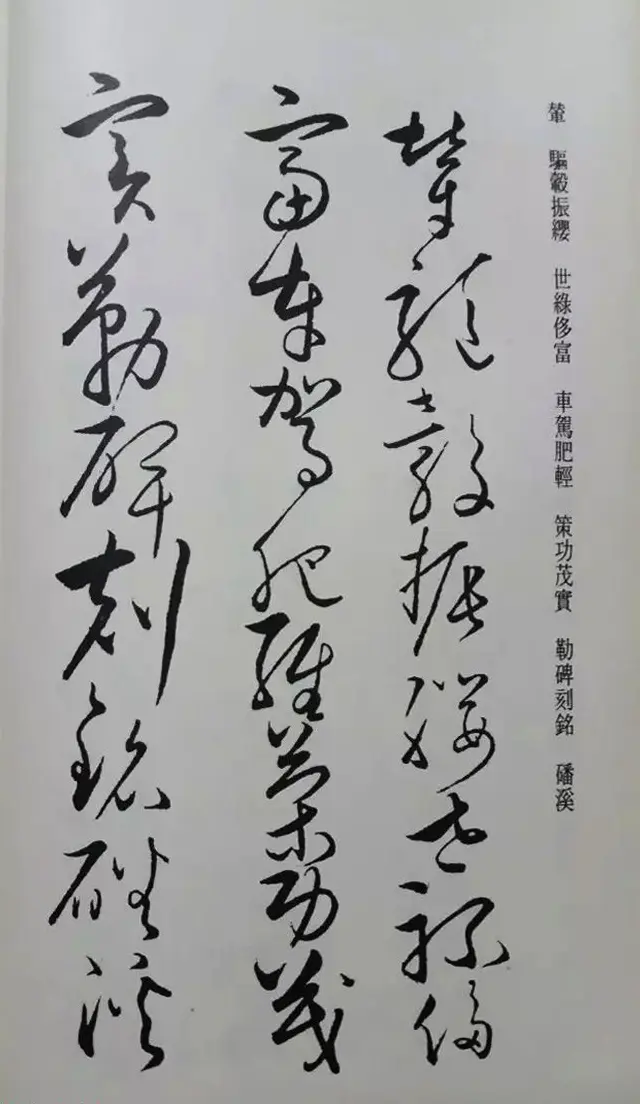 輦 驅轂振纓 世綠侈富 車駕肥輕 策功茂實 勒碑刻銘 磻溪
輦驅轂振纓世祿侈
富車駕肥輕策功茂
實勒碑刻銘磻溪